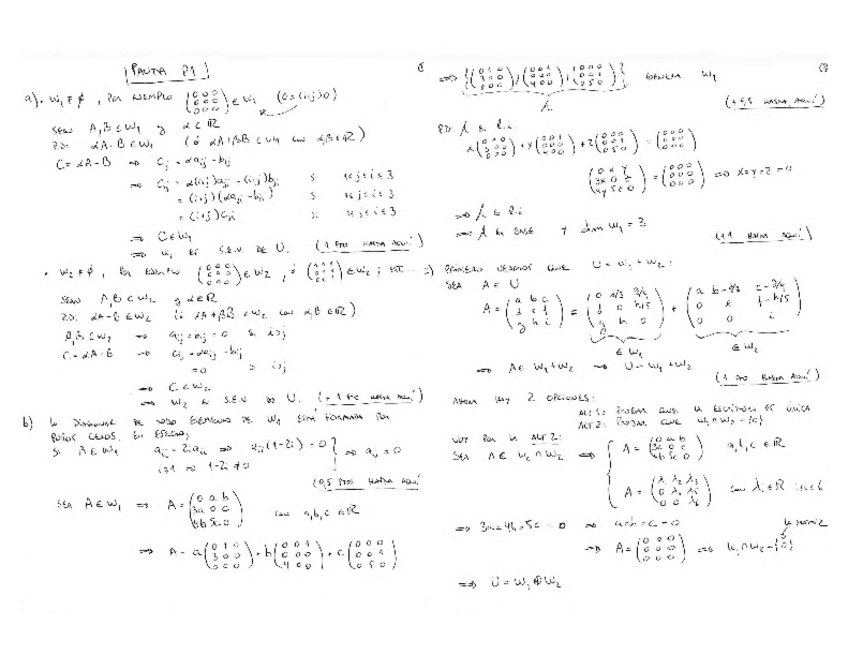 PAUTA P1
a). W₁ ≠ ∅, POR EJEMPLO (0 0 0 / 0 0 0 / 0 0 0) ∈ W₁ (0 = (i+j)0)
SEAN A, B ∈ W₁ y α ∈ ℝ
P.D: αA - B ∈ W₁ (ó αA + βB ∈ W₁ con α, β ∈ ℝ)
C = αA - B ⇒ Cij = αaij - bij
⇒ Cij = α(i+j)aji - (i+j)bji si 1≤j≤i≤3
= (i+j)(αaji - bji) si 1≤j≤i≤3
= (i+j)Cji si 1≤j≤i≤3
⇒ C ∈ W₁
⇒ W₁ ES S.E.V. DE U. (1 PTO HASTA AQUÍ)
• W₂ ≠ ∅, POR EJEMPLO (0 0 0 / 0 0 0 / 0 0 0) ∈ W₂, ó ∈ W₂; ETC
SEAN A, B ∈ W₂ y α ∈ ℝ
P.D: αA - B ∈ W₂ (ó αA + βB ∈ W₂ con α, β ∈ ℝ)
A, B ∈ W₂ ⇒ = 0 si i>j
C = αA - B ⇒ Cij = αaij - bij
= 0 si i>j
⇒ C ∈ W₂
⇒ W₂ ES S.E.V. DE U. (+1 PTO HASTA AQUÍ)
b) LA DIAGONAL DE TODO ELEMENTO DE W₁ ESTÁ FORMADA POR
PUROS CEROS. EN EFECTO,
SI A ∈ W₁ aii = 2i aii ⇒ aii(1-2i) = 0
i≥1 ⇒ 1-2i ≠ 0 } ⇒ aii = 0
(0,5 PTOS HASTA AQUÍ)
SEA A ∈ W₁ ⇒ A = (0 a b / 3a 0 c / 4b 5c 0) con a, b, c ∈ ℝ
⇒ A = a(0 1 0 / 3 0 0 / 0 0 0) + b(0 0 1 / 0 0 0 / 4 0 0) + c(0 0 0 / 0 0 1 / 0 5 0)
⇒ {(0 1 0 / 3 0 0 / 0 0 0), (0 0 1 / 0 0 0 / 4 0 0), (0 0 0 / 0 0 1 / 0 5 0)} GENERA W₁
(+0,5 HASTA AQUÍ)
P.D: ES l.i.
x(0 1 0 / 3 0 0 / 0 0 0) + y(0 0 1 / 0 0 0 / 4 0 0) + z(0 0 0 / 0 0 1 / 0 5 0) = (0 0 0 / 0 0 0 / 0 0 0)
(0 x y / 3x 0 z / 4y 5z 0) = (0 0 0 / 0 0 0 / 0 0 0) ⇒ x = y = z = 0
⇒ ES l.i.
⇒ ES BASE Y dim W₁ = 3
(+1 HASTA AQUÍ)
c) PRIMERO VEAMOS QUE U = W₁ + W₂:
SEA A ∈ U
A = (a b c / d e f / g h i) = (0 d/3 g/4 / d 0 h/5 / g h 0) + (a b-d/3 c-g/4 / 0 e f-h/5 / 0 0 i)
∈ W₁ ∈ W₂
⇒ A ∈ W₁ + W₂ ⇒ U = W₁ + W₂
(1 PTO HASTA AQUÍ)
AHORA HAY 2 OPCIONES:
ALT 1: PROBAR QUE LA ESCRITURA ES ÚNICA
ALT 2: PROBAR QUE W₁ ∩ W₂ = {0}
VOY POR LA ALT 2:
SEA A ∈ W₁ ∩ W₂ ⇒ { A = (0 a b / 3a 0 c / 4b 5c 0) a, b, c ∈ ℝ
A = (λ₁ λ₂ λ₃ / 0 λ₄ λ₅ / 0 0 λ₆) con λi ∈ ℝ 1≤i≤6
⇒ 3a = 4b = 5c = 0 ⇒ a = b = c = 0
⇒ A = (0 0 0 / 0 0 0 / 0 0 0) ⇒ W₁ ∩ W₂ = {0}
⇒ U = W₁ ⊕ W₂